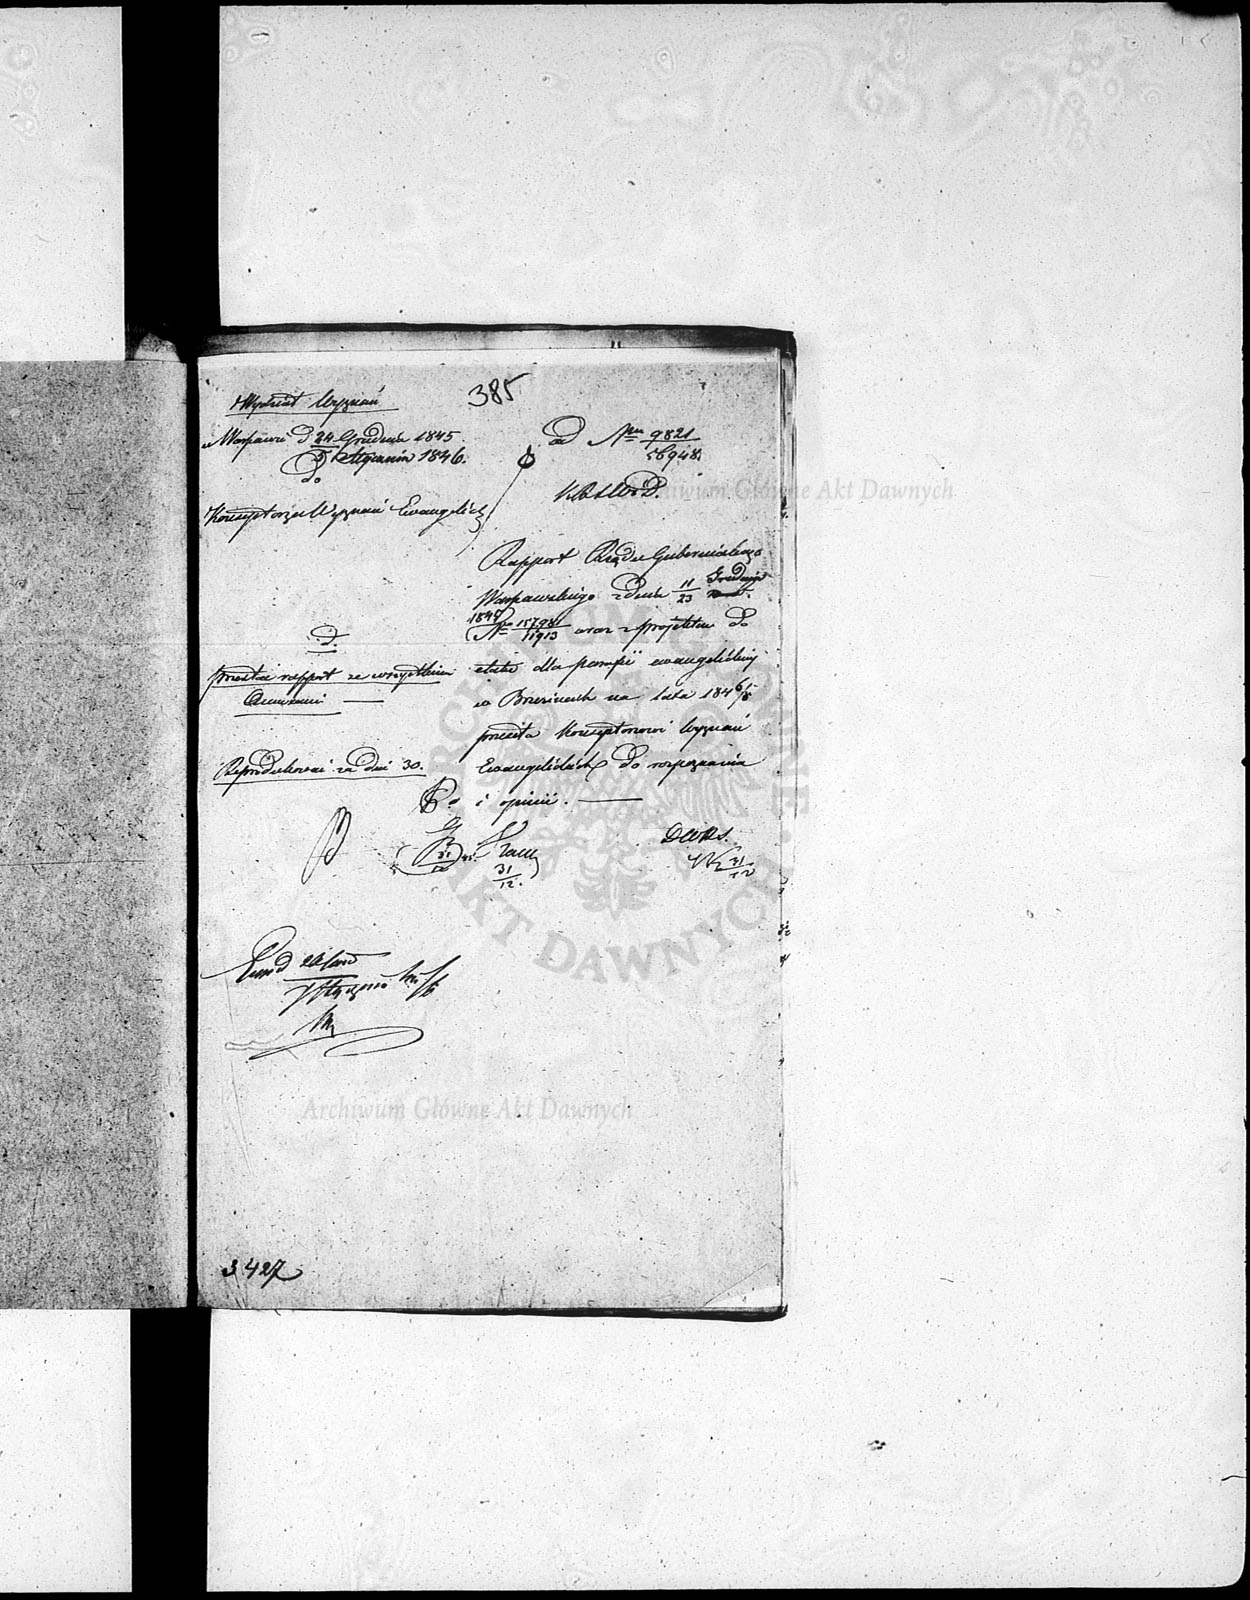 385
Wydział Wyznań
w Warszawie d 24 Grudnia 1845
5 Stycznia 1846.
do
Konceptorza Wyznań Ewangelick
ad Nrm 9821
56948
K R S W i D.
Rapport Rządu Gubernialnego
Warszawskiego z dnia 11/23 Grudnia
1845 No 15798/11913 oraz z projektem do
etatu dla parafii ewangelickiej
w Brzezinach na lata 1846/
przesyła Konceptorowi Wyznań
Ewangelickich do rozpoznania
i opinii.
D.
przesyła rapport ze wszystkiemi
Annexami
Reprodukować za dni 30.
31/12
31/12.
DWRS.
31/12
3427
Archiwum Główne Akt Dawnych
Archiwum Główne Akt Dawnych
ARCHIWUM GŁÓWNE AKT DAWNYCH